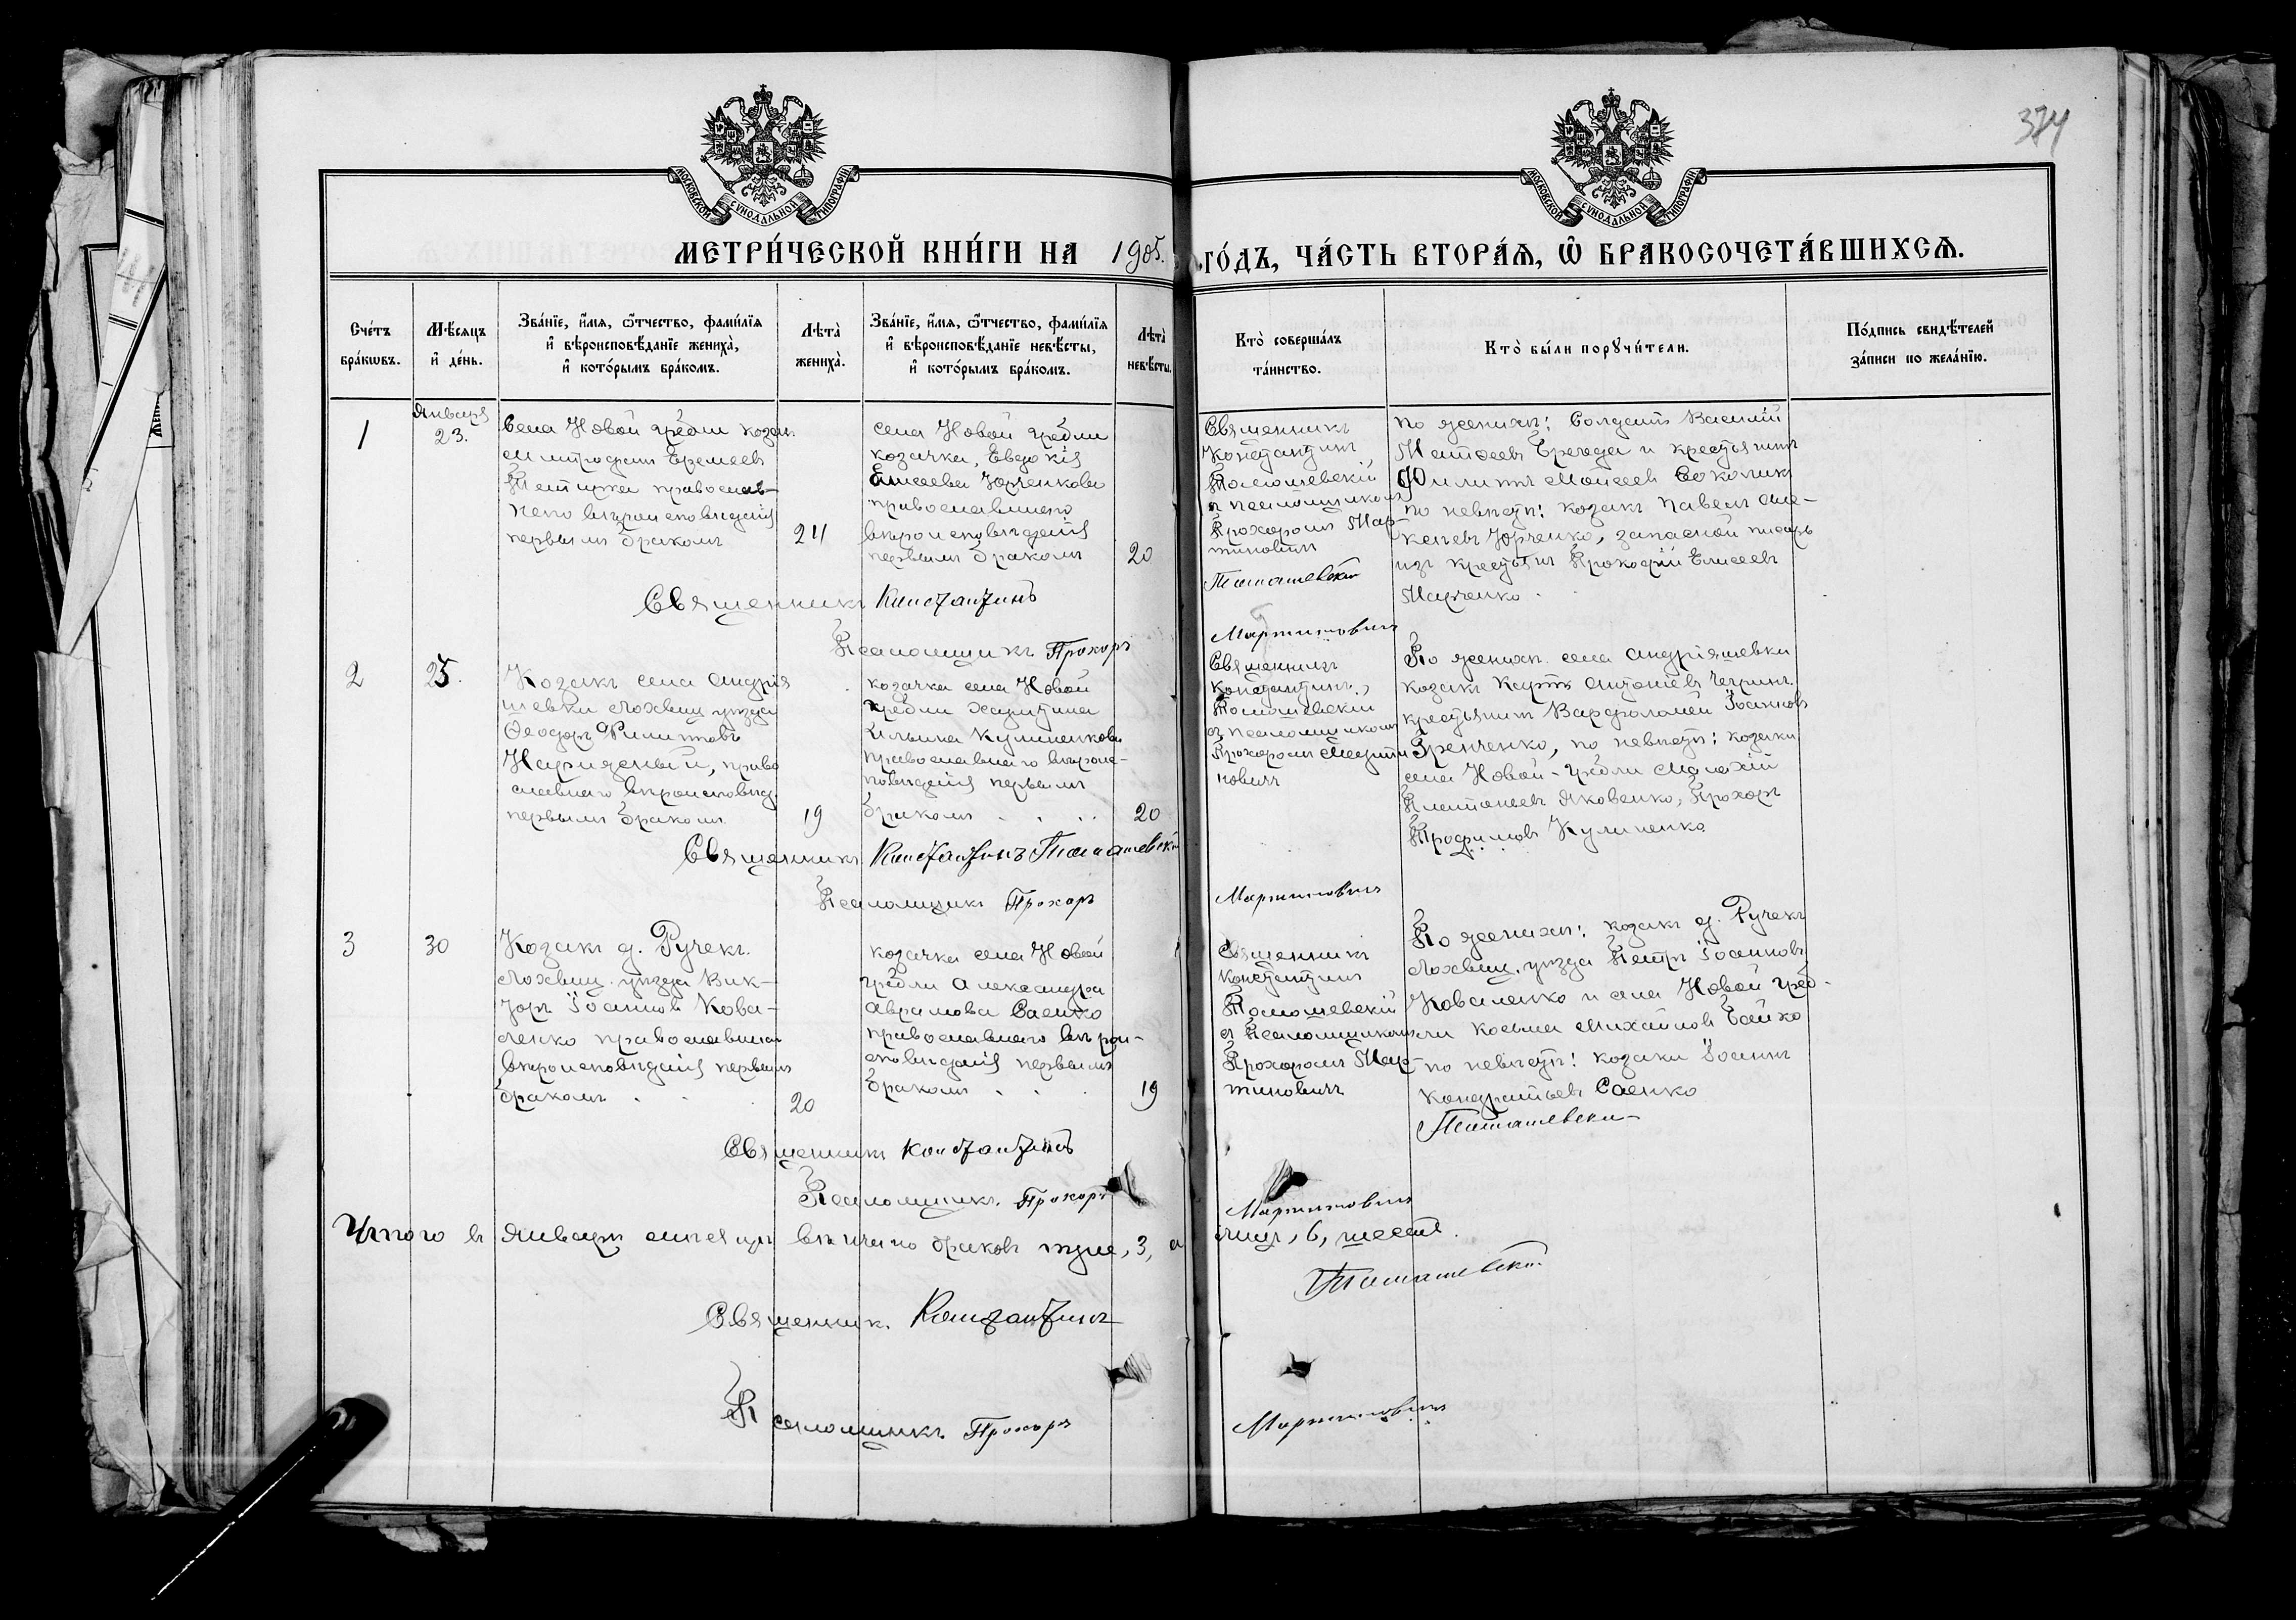 374
МОСКОВСКОЙ СѴНОДАЛЬНОЙ ТИПОГРАФІИ
МОСКОВСКОЙ СѴНОДАЛЬНОЙ ТИПОГРАФІИ
МЕТРИ́ЧЕСКОЙ КНИ́ГИ НА 1905. ГО́ДЪ, ЧА́СТЬ ВТОРА́Ѧ, Ѿ БРАКОСОЧЕТА́ВШИХСѦ.
Сче́тъ
бра́кѡвъ.
Мѣ́сяцъ
и҆ де́нь.
Зва́нїе, и҆́мя, ѻ҆́тчество, фами́лїя
и҆ вѣроисповѣ́данїе жениха̀,
и҆ кото́рымъ бра́комъ.
Лѣта̀
жениха̀.
Зва́нїе, и҆́мя, ѻ҆́тчество, фами́лїя
и҆ вѣроисповѣ́данїе невѣ́сты,
и҆ кото́рымъ бра́комъ.
Лѣта̀
невѣ́сты.
Кто̀ соверша́лъ
та́инство.
Кто̀ бы́ли порꙋчи́тели.
По́дпись свидѣ́телей
за́писи по жела́нїю.
1
Января
23.
Села Новой Гребли козак
Митрофан Еремеевъ
православ-
наго вѣроисповѣданія
первымъ бракомъ
24
села Новой Гребли
козачка, Евдокія
Юрченкова
православнаго
вѣроисповѣданія
первымъ бракомъ
20
Священникъ
Константинъ
Томашевскій
съ псаломщикомъ
Прохоромъ Мар-
тиновичъ
По женихѣ: Солдатъ Василій
Матѳеевъ и крестьянинъ
Филиппъ Моисеевъ
по невѣстѣ: козакъ Павелъ
Юрченко, запасной писарь
изъ крестьянъ Прокофій Елисеевъ
Марченко.
Священникъ Константинъ Томашевскій
Псаломщикъ Прохоръ Мартиновичъ
2
25.
Козакъ села Андрія
шевки Лохвиц. уѣзда
Ѳеодоръ Филипповъ
Нариженый, право
славнаго вѣроисповѣд.
первымъ бракомъ.
19
козачка села Новой
Гребли Харитина
Ильина Кулиненкова
православнаго вѣроис-
повѣданія первымъ
бракомъ
20
Священникъ
Константинъ,
Томашевскій
съ псаломщикомъ
Прохоромъ Марти
новичъ
По женихѣ села Андріяшевки
козакъ Карпъ Антоніевъ
крестьянинъ Варфоломей Іоанновъ
Гренченко, по невѣстѣ: козаки
села Новой-Гребли Малахій
Яковенко, Прохоръ
Трофимовъ Кулиненко
Священникъ Константинъ Томашевскій
Псаломщикъ Прохоръ Мартиновичъ
3
30
Козакъ д. Ручекъ
Лохвиц. уѣзда Вик-
торъ Іоанновъ Кова-
ленко православнаго
вѣроисповѣданія первымъ
бракомъ
20
козачка села Новой
Гребли Александра
Аврамова Саенко
православнаго вѣрои-
сповѣданія первымъ
бракомъ
19
Священникъ
Константинъ
Томашевскій
съ Псаломщикомъ
Прохоромъ Мар-
тиновичъ
По женихѣ: козакъ д. Ручекъ
Лохвиц. уѣзда Петръ Іоанновъ
Коваленко и села Новой Греб-
ли Косьма Михайловъ Бойко
по невѣстѣ: козаки Іоаннъ
Кондратьевъ Саенко
Священникъ Константинъ Томашевскій
Псаломщикъ. Прохоръ Мартиновичъ
Итого въ Январѣ мѣсяцѣ вѣнчано браковъ три, 3, а лицъ, 6, шесть.
Священник. Константинъ Томашевскій
Псаломщикъ Прохоръ Мартиновичъ